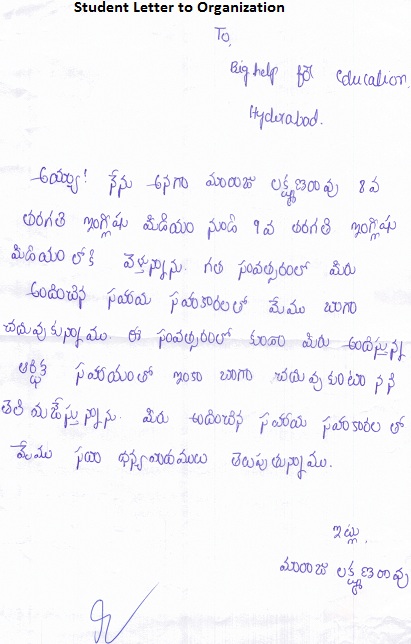 Student Letter to Organization
To,
Big help for Education.
Hyderabad.
అయ్యా! నేను అనగా మారాజు లక్ష్మణరావు 8వ
తరగతి ఇంగ్లీషు మీడియం నుండి 9వ తరగతి ఇంగ్లీషు
మీడియం లోకి వెళ్తున్నాను. గత సంవత్సరంలో మీరు
అందించిన సహాయ సహకారాలతో మేము బాగా
చదువుకున్నాము. ఈ సంవత్సరంలో కుడా మీరు అందిస్తున్న
ఆర్థిక సహాయంతో ఇంకా బాగా చదువుకుంటానని
తెలియజేస్తున్నాను. మీరు అందించిన సహాయ సహకారాల తో
మేము సదా ధన్యవాదములు తెలుపుతున్నాము.
ఇట్లు,
మారాజు లక్ష్మణరావు